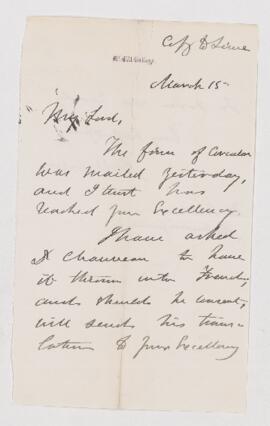 Copy to Lorne
March 15
My Lord,
The form of Circular
was mailed yesterday,
and I trust has
reached your Excellency.
I have asked
Dr Chauveau to have
it thrown into French,
and should he consent,
will send his trans-
lation to your Excellency